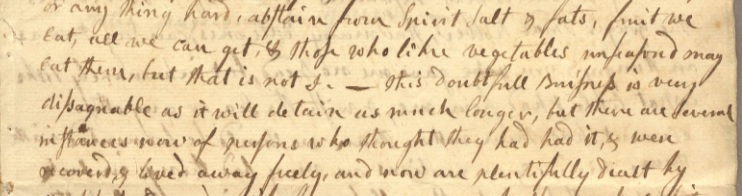 or any thing hard, abstain from Spirit Salt & fats, fruit we
Eat, all we can get, & those who like vegetables unseasond may
Eat them, but that is not I. — This doubtfull Buisness is very
disagreable as it will detain us much longer, but there are several
instances now of persons who thought they had had it, & were
recoverd, & lived away freely, and now are plentifully dealt by